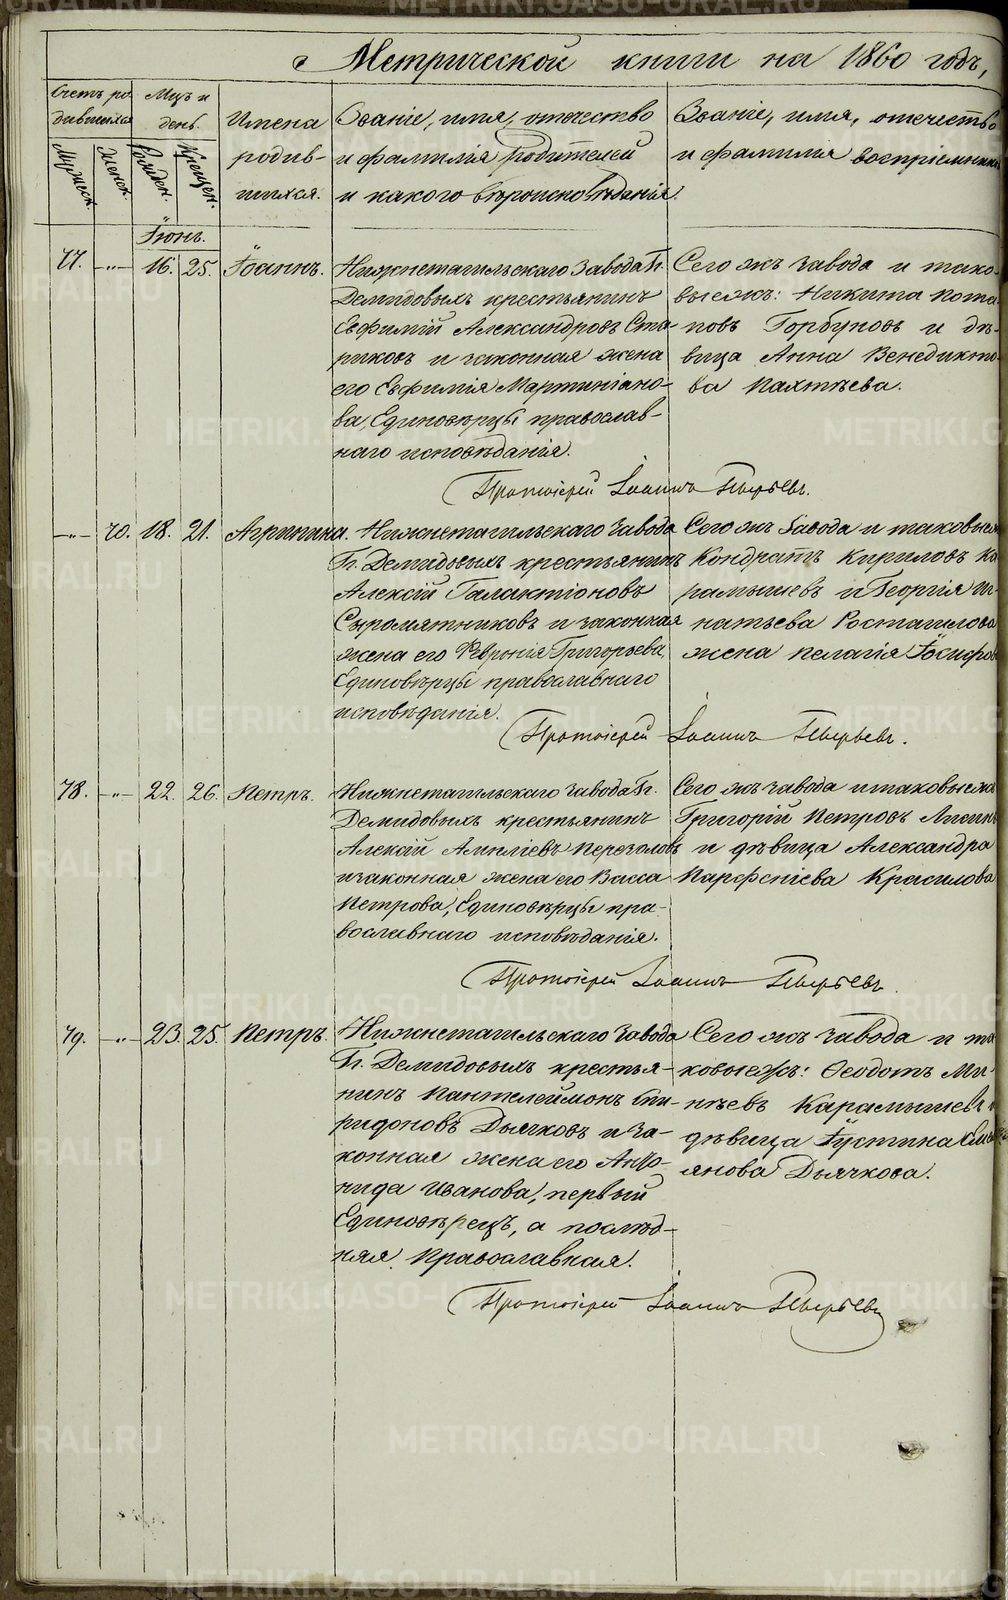 Метрической книги на 1860 годъ,
Счетъ ро-
дившихся
Мужеск.
Женск.
Мцъ и
день.
Рожден.
Крещен.
Имена
родив-
шихся.
Званіе, имя, отечество
и фамилія родителей
и какого вѣроисповѣданія.
Званіе, имя, отечество
и фамилія воспріемник
Іюнь.
77. -"- 16. 25. Іоаннъ.
Нижнетагильскаго завода Гг.
Демидовыхъ крестьянинъ
Евфимій Александровъ Ста-
риковъ и законная жена
его Евфимія Мартиніано-
ва, Единовѣрцы православ-
наго исповѣданія.
Сего жъ завода и тако-
выежъ: Никита Пота-
повъ Горбуновъ и дѣ-
вица Анна Венедикто-
ва Пахтѣева.
Протоіерей Іоаннъ Пырьевъ.
-"- 70. 18. 21. Агрипина.
Нижнетагильскаго завода
Гг. Демидовыхъ крестьянинъ
Алексій Галактіоновъ
Сыромятниковъ и законная
жена его Февронія Григорьева,
Единовѣрцы православнаго
исповѣданія.
Сего жъ завода и таковыеж
Кондратъ Кириловъ Ка-
рамышевъ и Георгія Иг-
натьева Ростагилова
жена Пелагія Іосифов
Протоіерей Іоаннъ Пырьевъ.
78. -"- 22. 26. Петръ.
Нижнетагильскаго завода Гг.
Демидовыхъ крестьянинъ
Алексій Аниліевъ Перезоловъ
и законная жена его Васса
Петрова, Единовѣрцы пра-
вославнаго исповѣданія.
Сего жъ завода и таковыежъ
Григорій Петровъ
и дѣвица Александра
Парфеніева Красилова
Протоіерей Іоаннъ Пырьевъ
79. -"- 23. 25. Петръ.
Нижнетагильскаго завода
Гг. Демидовыхъ крестья-
нинъ Пантелеймонъ Спи-
ридоновъ Дьячковъ и за-
конная жена его Анфо-
нида Иванова, первый
Единовѣрецъ, а послѣд-
няя Православная.
Сего жъ завода и та-
ковыежъ: Ѳеодотъ Ми-
нѣевъ Карамышевъ и
дѣвица Іустина Емель
янова Дьячкова.
Протоіерей Іоаннъ Пырьевъ
METRIKI.GASO-URAL.RU